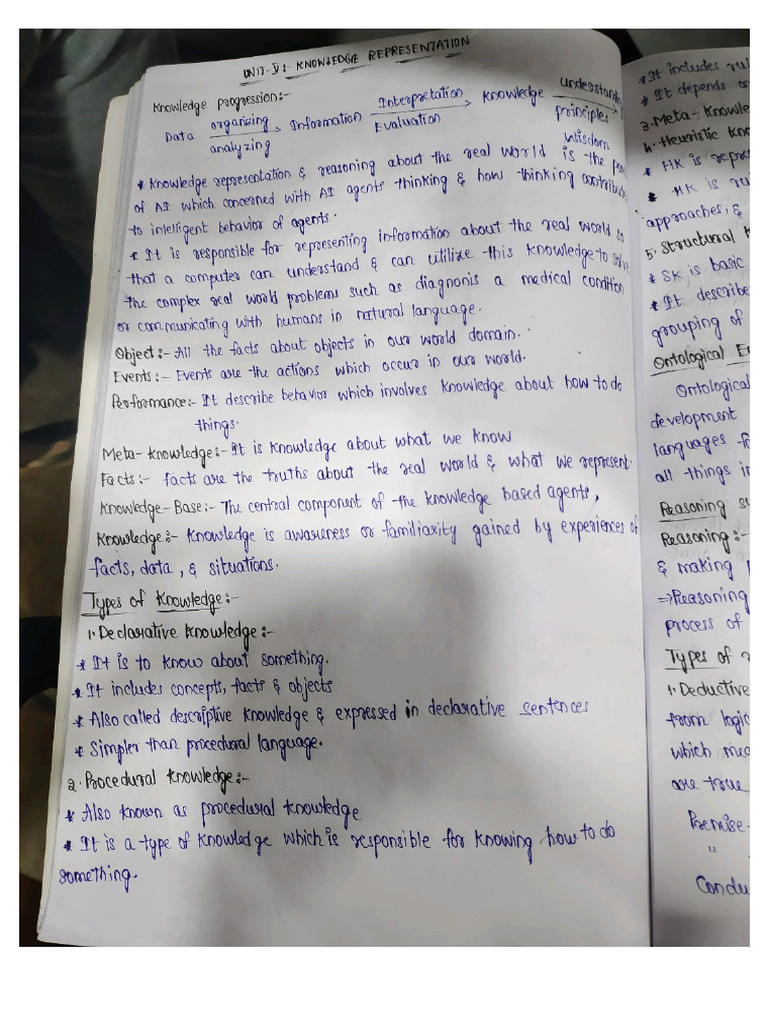 UNIT-V:- KNOWLEDGE REPRESENTATION
Knowledge progression:-
Data organizing analyzing Information Interpretation Evaluation Knowledge principles
wisdom
* Knowledge representation & reasoning about the real world is the
of AI which concerned with AI agents thinking & how thinking
to intelligent behavior of agents.
* It is responsible for representing information about the real world so
that a computer can understand & can utilize this knowledge to
the complex real world problems such as diagnonis a medical condition
or communicating with humans in natural language.
Object:- All the facts about objects in our world domain.
Events:- Events are the actions which occur in our world.
Performance:- It describe behavior which involves knowledge about how to do
things.
Meta-knowledge:- It is knowledge about what we know
Facts:- facts are the truths about the real world & what we represent.
Knowledge-Base:- The central component of the knowledge based agents,
Knowledge:- Knowledge is awareness or familiarity gained by experiences of
facts, data, & situations.
Types of Knowledge:-
1. Declarative knowledge:-
* It is to know about something.
* It includes concepts, facts & objects
* Also called descriptive knowledge & expressed in declarative sentences
* Simpler than procedural language.
2. Procedural knowledge:-
* Also known as procedural knowledge
* It is a type of knowledge which is responsible for knowing how to do
something.
* It includes
* It depends
3. Meta-
4. Heuristic
* HK is
* HK is
approaches, &
5. Structural
* SK is basic
* It describe
grouping of
Ontological
Ontological
development
languages
all things
Reasoning
Reasoning:-
& making
⇒Reasoning
process of
Types of
1. Deductive
from logic
which
are true
Premise-
"